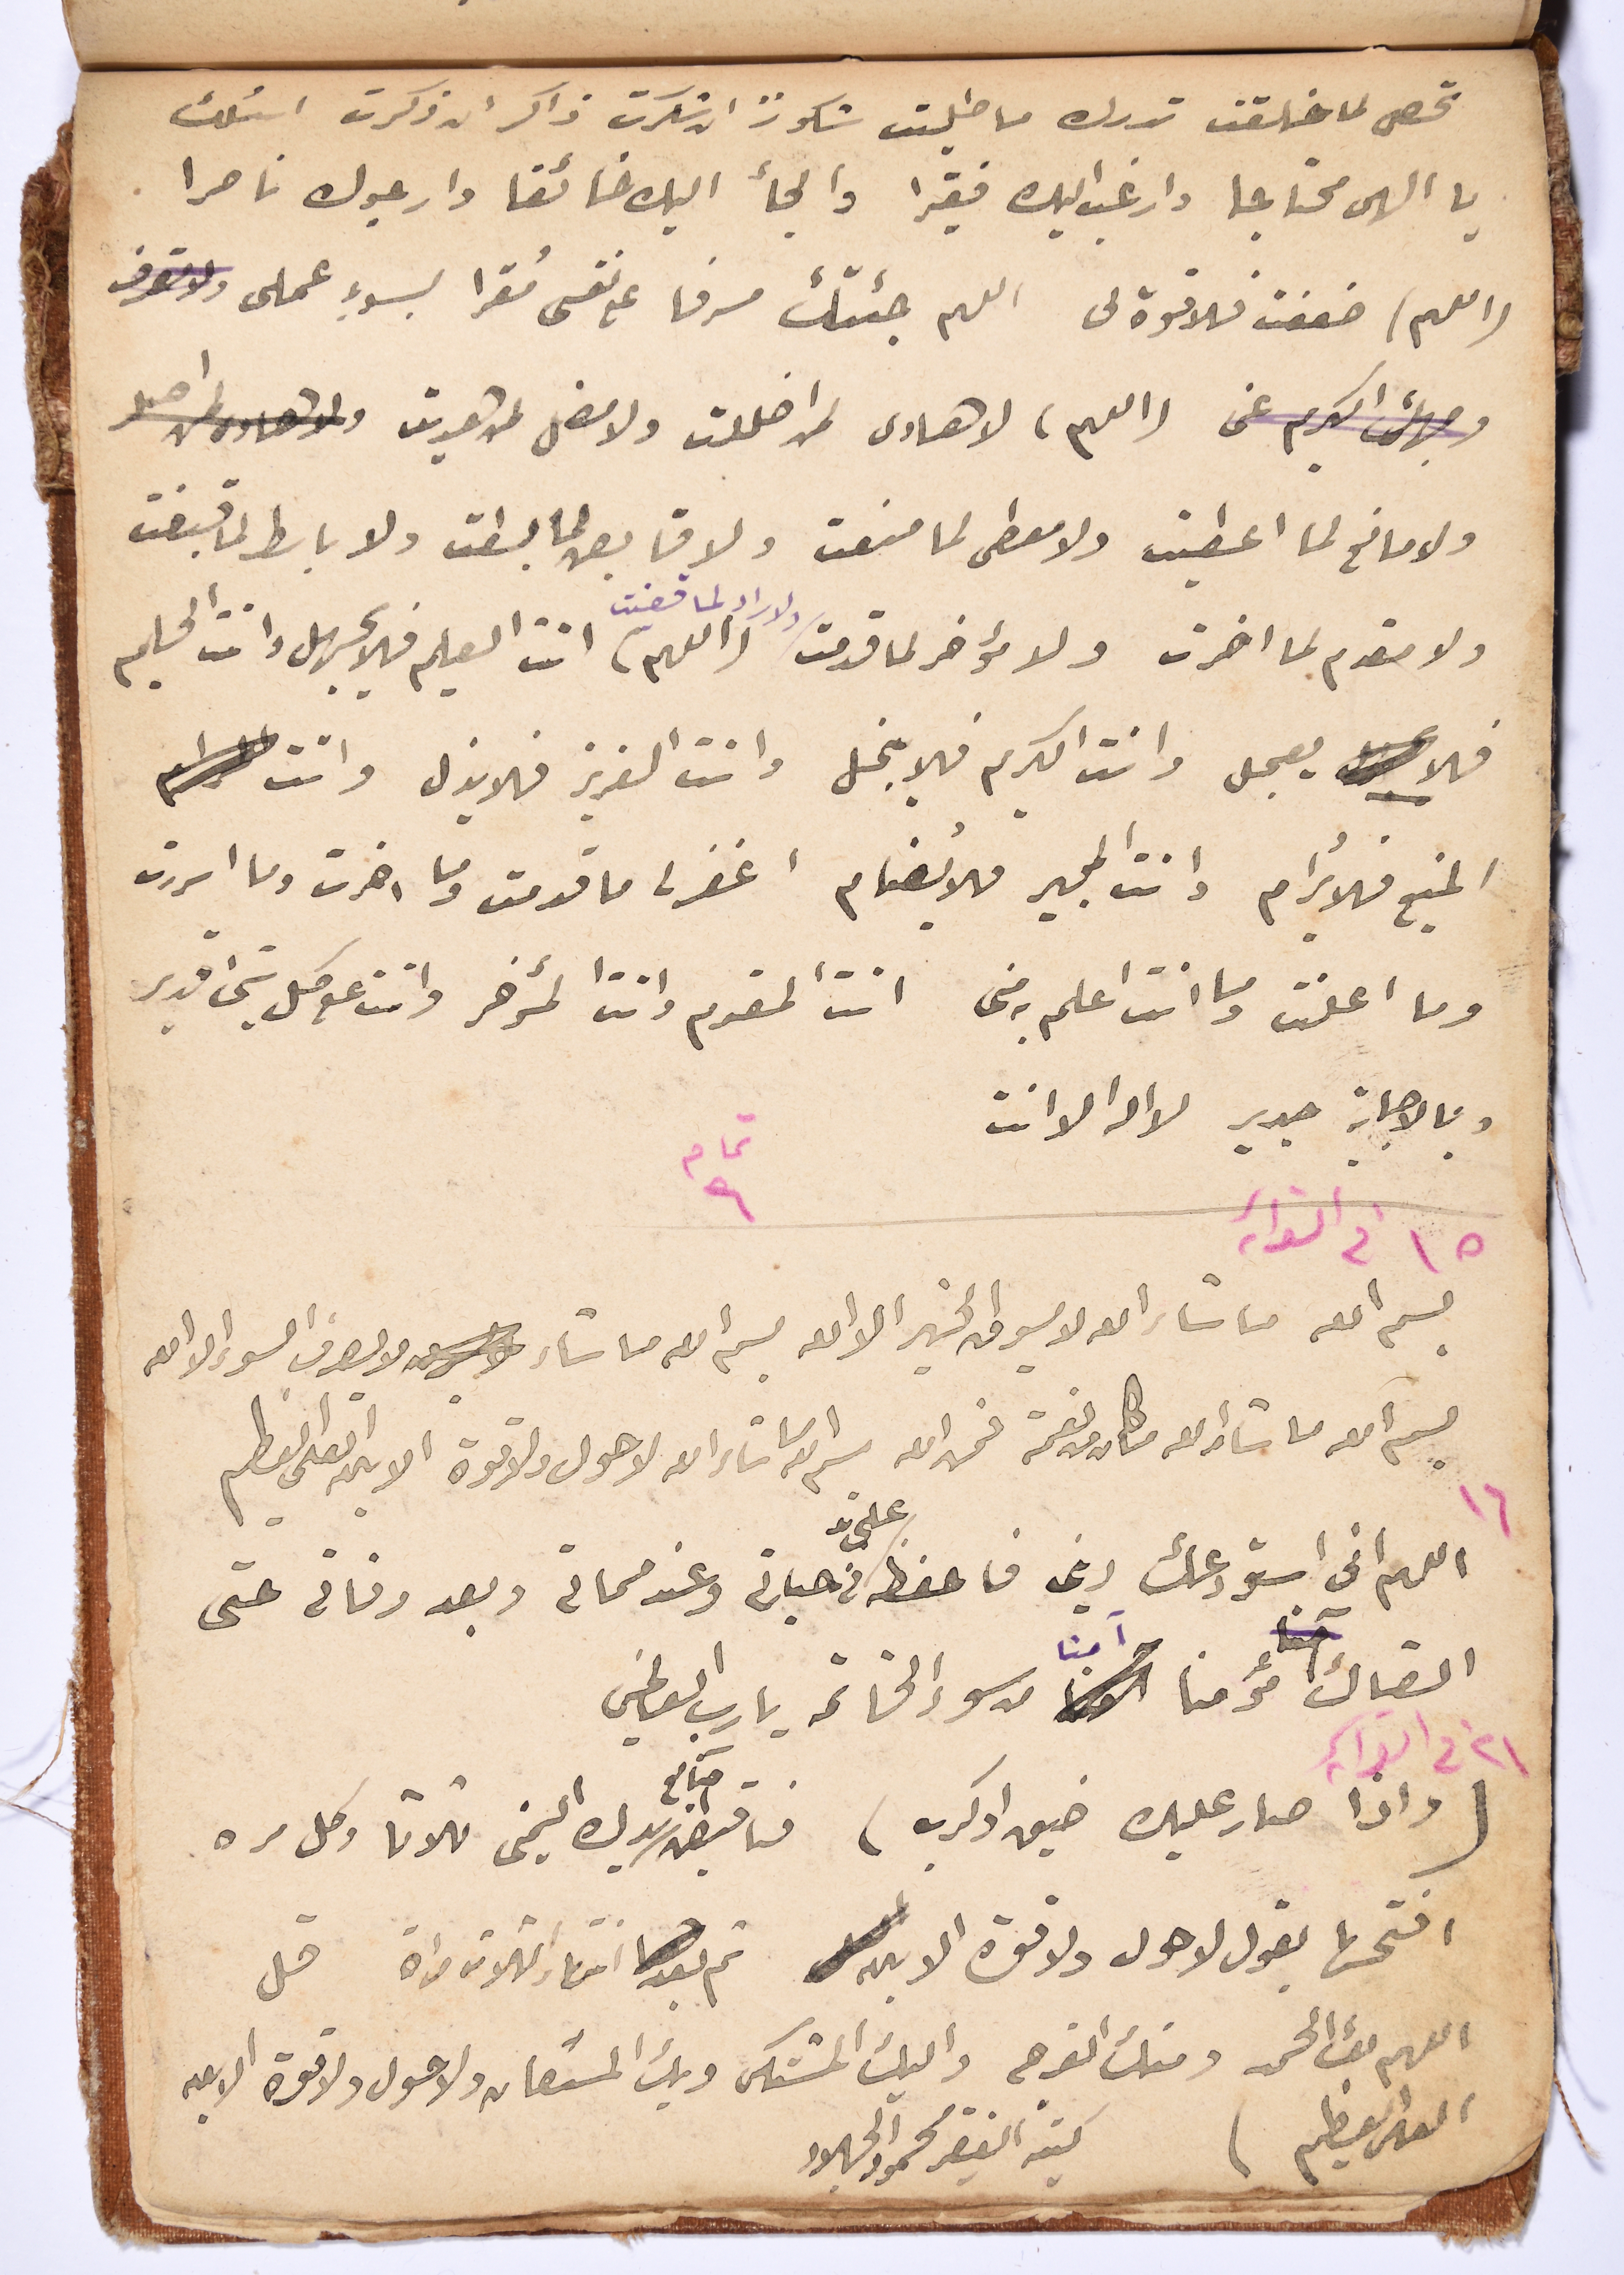 تحصى لما خلقت تدرك ما طلبت شكورا ان شكرت ذاكر ان ذكرت اسئلك
يا الهى محتاجا وارغب اليك فقيرا والجأ اليك خائفا وارجوك ناصرا
(اللهم) ضعفت فلا قوة لى اللهم جئتك مسرفا على نفسى مُقرا بسوء عملى
وجهك الكريم عنى (اللهم) لا هادى لمن اضللت ولا مضل لمن هديت ولا هادى لمن
ولا مانع لما اعطيت ولا معطى لما منعت ولا قابض لما بسطت ولا باسط لما قبضت
ولا راد لما قضيت
ولا مقدم لما اخرت ولا مؤخر لما قدمت (اللهم) انت العليم فلا يجهل وانت الحليم
فلا يعجل وانت الكريم فلا يبخل وانت العزيز فلا يذل وانت
المنيع فلا يُرام وانت المجير فلا يُضام اغفر لى ما قدمت وما اخرت وما اسررت
وما اعلنت وما انت اعلم به منى انت المقدم وانت المؤخر وانت على كل شئ قدير
وبالاجابة جدير لا اله الا انت
تمام
١٥ فى الفوائد
بسم الله ما شاء الله لا يسوق الخير الا الله بسم الله ما شاء لا يصرف السوء الا الله
بسم الله ما شاء الله ما كان من نعمة فمن الله بسم الله ما شاء الله لا حول ولا قوة الا بالله العلى العظيم
١٦
اللهم انى استودعك دينى فاحفظه على فى حياتى وعند مماتى وبعد وفاتى حتى
القاك مؤمنا آمنا من سوء الخاتمة يا رب العالمين
٢١ فى الفوائد
(واذا صار عليك ضيق او كرب) فاقبض اصابع يدك اليمنى ثلاثا وكل مره
افتحها بقول لا حول ولا قوة الا بالله ثم بعد انتهاء الثلاث مراة قل
اللهم لك الحمد ومنك الفرج واليك المشتكى وبك المستعان ولا حول ولا قوة الا بالله
العلى العظيم) كتبه الفقير محمود